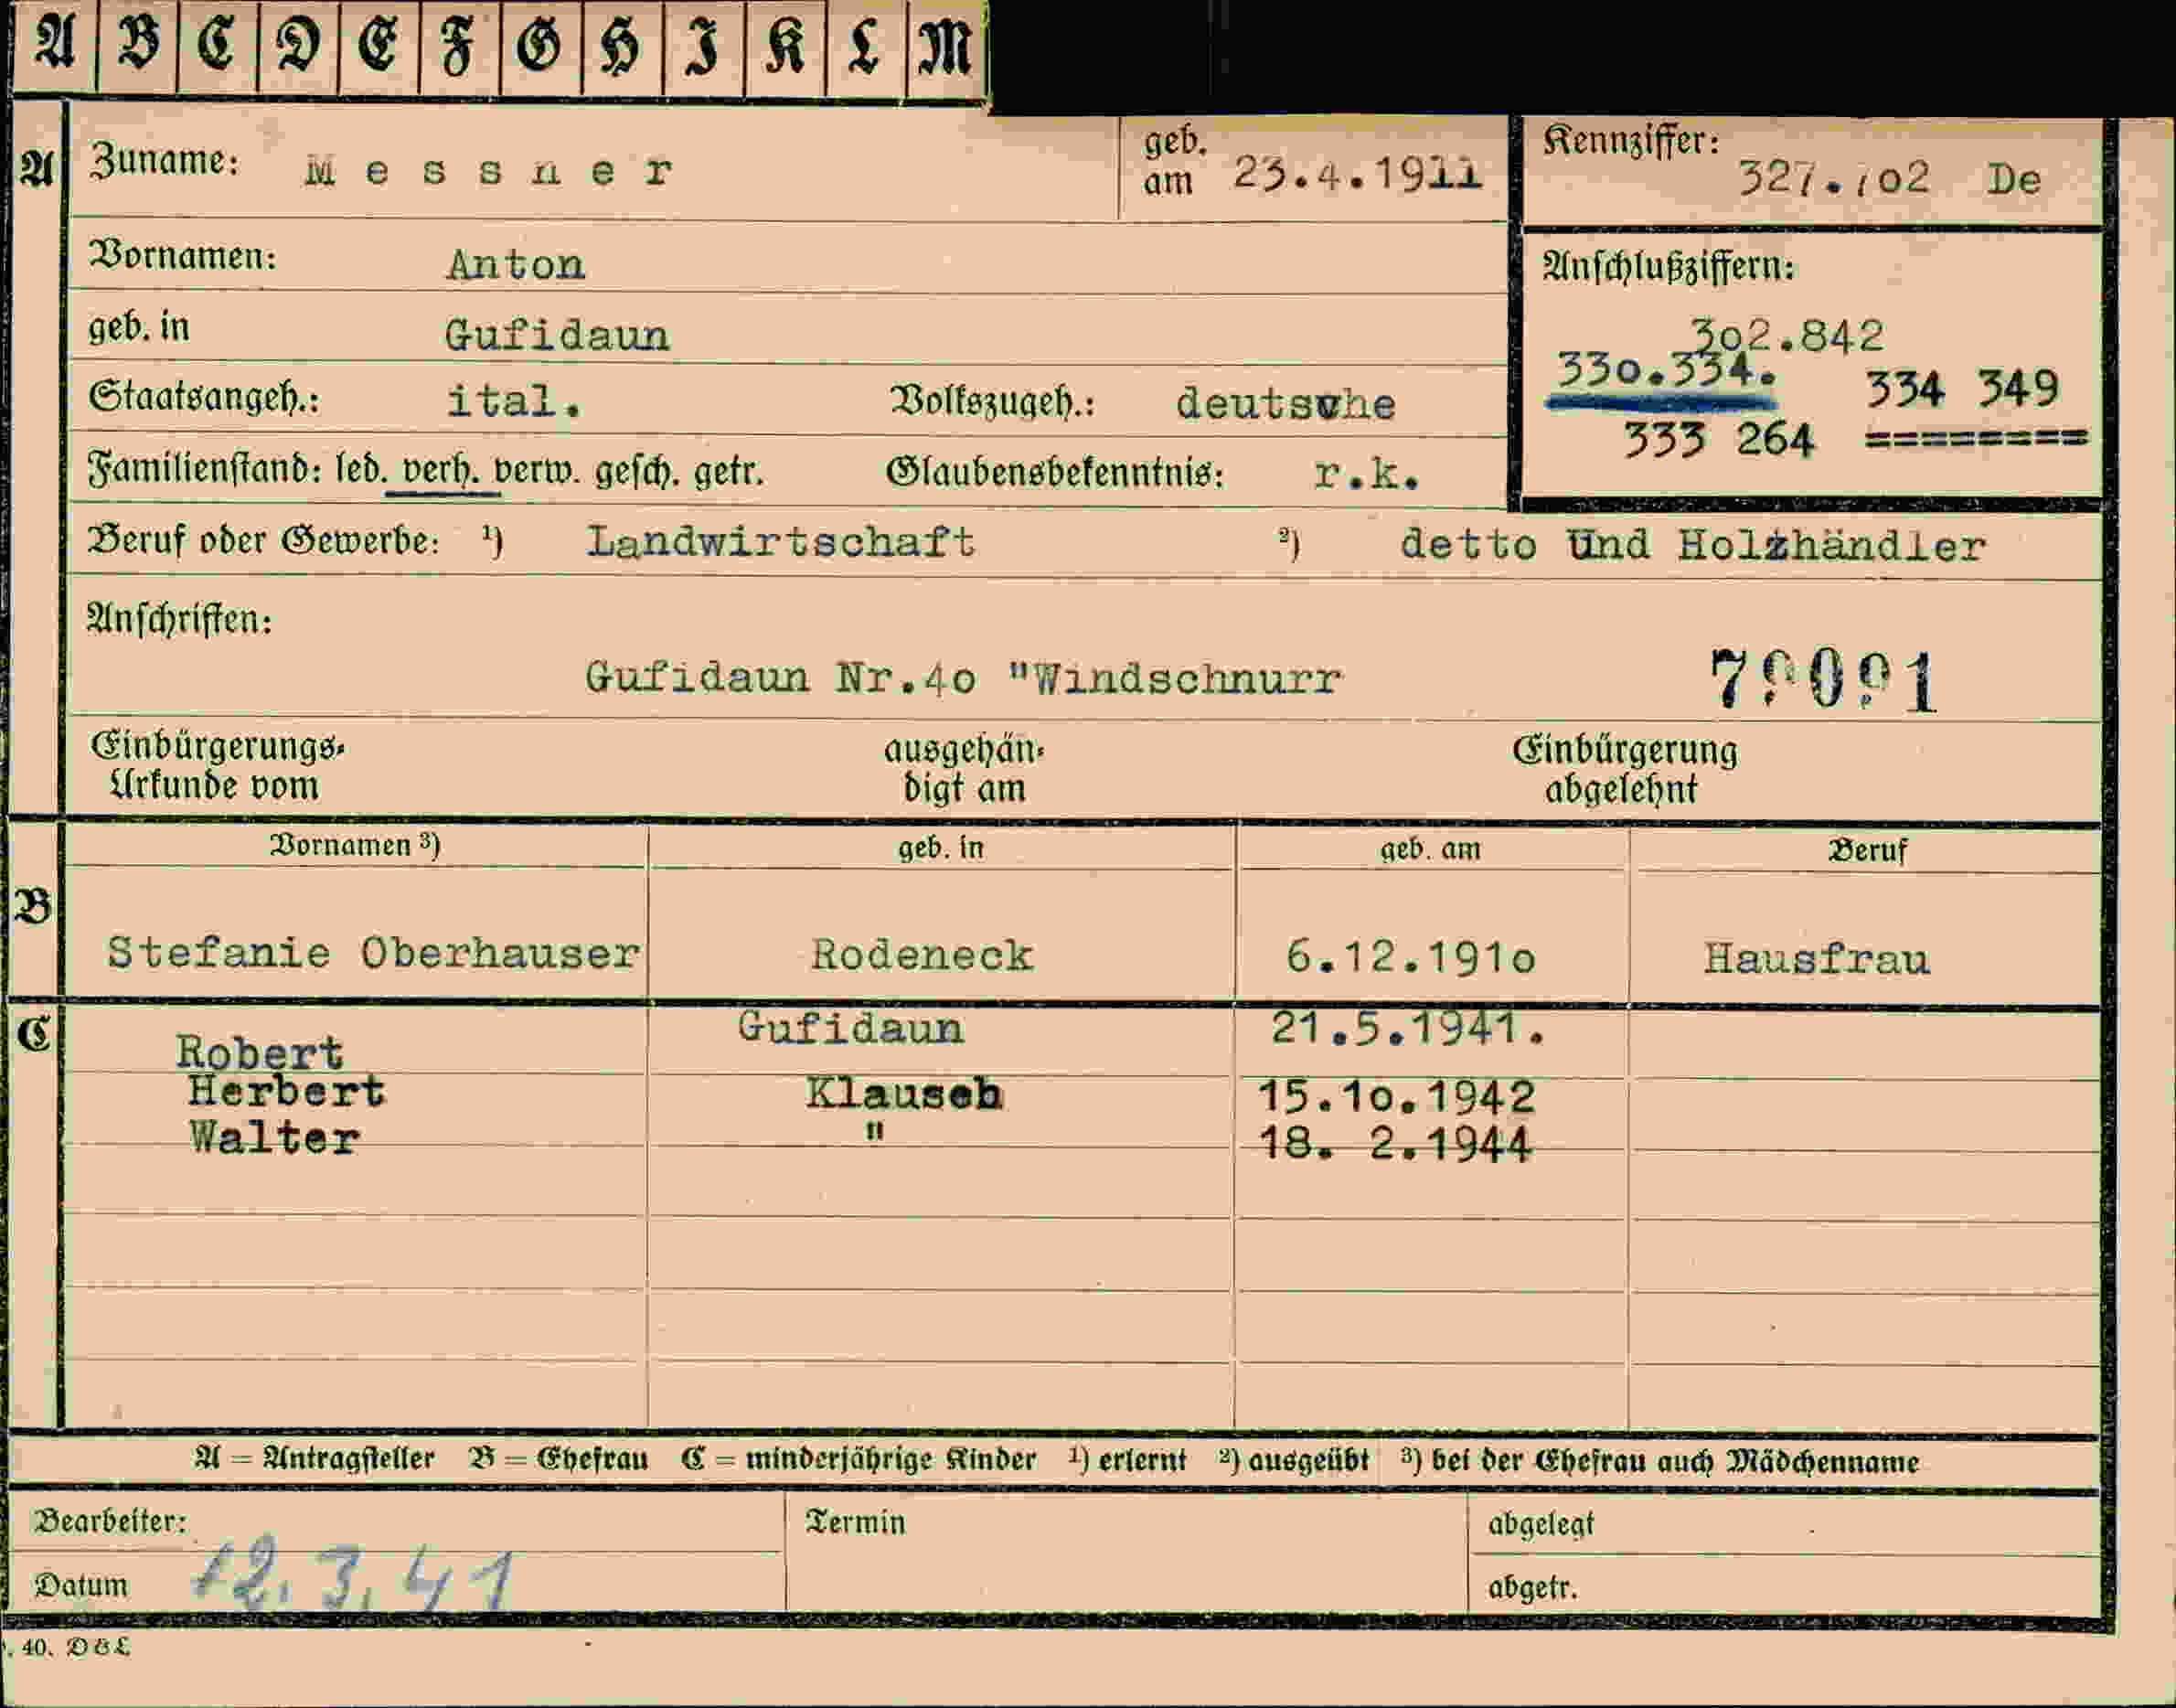 A B C D E F G H I K L M
A Zuname: Messner geb. am 23.4.1911 Kennziffer: De
Vornamen: Anton Anschlußziffern:
geb. in Gufidaun 302.842
330.334. 334 349
Staatsangeh.: ital. Volkszugeh.: deutsche
333 264 ========
Familienstand: led. verh. verw. gesch. getr. Glaubensbekenntnis: r.k.
Beruf oder Gewerbe: ¹) Landwirtschaft ²) detto und Holzhändler
Anschriften:
Gufidaun Nr.4o "Windschnurr
Einbürgerungs- Urkunde vom ausgehän- digt am Einbürgerung abgelehnt
Vornamen ³) geb. in geb. am Beruf
B Stefanie Oberhauser Rodeneck 6.12.191o Hausfrau
C Robert Gufidaun 21.5.1941.
Herbert Klauseb 15.1o.1942
Walter " 18. 2.1944
A = Antragsteller B = Ehefrau C = minderjährige Kinder ¹) erlernt ²) ausgeübt ³) bei der Ehefrau auch Mädchenname
Bearbeiter: Termin abgelegt
Datum 12.3.41 abgetr.
. 40. DUL